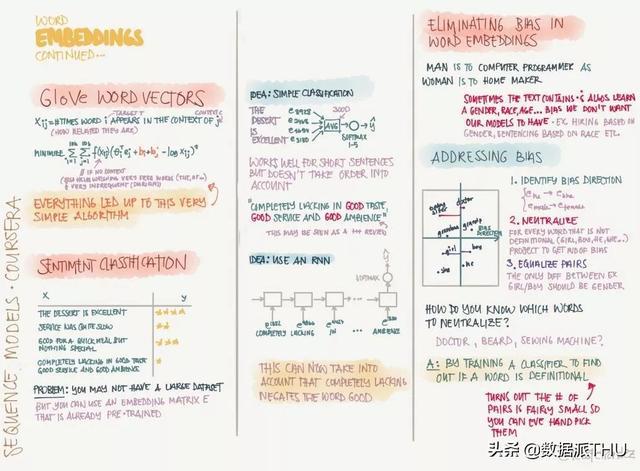 WORD
EMBEDDINGS
CONTINUED...
GloVe WORD VECTORS
Xij = # TIMES WORD i APPEARS IN THE CONTEXT OF j
TARGET
CONTEXT
(HOW RELATED THEY ARE)
MINIMIZE
EVERYTHING LED UP TO THIS VERY
SIMPLE ALGORITHM
SENTIMENT CLASSIFICATION
X y
THE DESSERT IS EXCELLENT
SERVICE WAS QUITE SLOW
GOOD FOR A QUICK MEAL BUT
NOTHING SPECIAL
COMPLETELY LACKING IN GOOD TASTE
GOOD SERVICE AND GOOD AMBIENCE
PROBLEM: YOU MAY NOT HAVE A LARGE DATASET
BUT YOU CAN USE AN EMBEDDING MATRIX E
THAT IS ALREADY PRE-TRAINED
SEQUENCE MODELS · COURSERA
IDEA: SIMPLE CLASSIFICATION
THE
DESSERT
IS
EXCELLENT
AVG
300D
ŷ
SOFTMAX
1-5
WORKS WELL FOR SHORT SENTENCES
BUT DOESN'T TAKE ORDER INTO
ACCOUNT
"COMPLETELY LACKING IN GOOD TASTE,
GOOD SERVICE AND GOOD AMBIENCE"
THIS MAY BE SEEN AS A ++ REVIEW
IDEA: USE AN RNN
ŷ
SOFTMAX
COMPLETELY LACKING IN ... AMBIENCE
THIS CAN NOW TAKE INTO
ACCOUNT THAT COMPLETELY LACKING
NEGATES THE WORD GOOD
ELIMINATING BIAS IN
WORD EMBEDDINGS
MAN IS TO COMPUTER PROGRAMMER AS
WOMAN IS TO HOME MAKER
SOMETIMES THE TEXT CONTAINS & ALGOS. LEARN
A GENDER, RACE, AGE... BIAS WE DON'T WANT
OUR MODELS TO HAVE · EX. HIRING BASED ON
GENDER, SENTENCING BASED ON RACE ETC.
ADDRESSING BIAS
doctor
girl
boy
she
he
BIAS
DIRECTION
1. IDENTIFY BIAS DIRECTION
2. NEUTRALIZE
FOR EVERY WORD THAT IS NOT
DEFINITIONAL (GIRL, BOY, HE, SHE...)
PROJECT TO GET RID OF BIAS
3. EQUALIZE PAIRS
THE ONLY DIFF BETWEEN EX
GIRL/BOY SHOULD BE GENDER
HOW DO YOU KNOW WHICH WORDS
TO NEUTRALIZE?
DOCTOR, BEARD, SEWING MACHINE?
A: BY TRAINING A CLASSIFIER TO FIND
OUT IF A WORD IS DEFINITIONAL
TURNS OUT THE # OF
PAIRS IS FAIRLY SMALL SO
YOU CAN EVEN HAND PICK
THEM
头条 @数据派THU